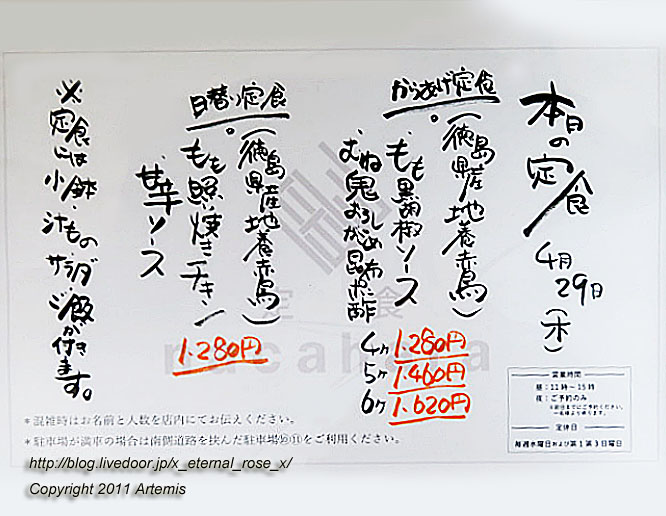 本日の定食
4月29日(木)
からあげ定食
(徳島県産地養赤鳥)
・もも黒胡椒ソース
むね鬼おろしがごめ昆布ポン酢
4ヶ 1.280円
5ヶ 1.460円
6ヶ 1.620円
日替り定食
(徳島県産地養赤鳥)
・もも照り焼きチキン
甘辛ソース
1.280円
※定食には
小鉢・汁もの・
サラダ・ご飯が付きます。
定食
nacahara
営業時間
昼:11時〜15時
夜:ご予約のみ
定休日
毎週水曜日および第1第3日曜日
*混雑時はお名前と人数を店内にてお伝えください。
*駐車場が満車の場合は南側道路を挟んだ駐車場⑩⑪をご利用ください。
http://blog.livedoor.jp/x_eternal_rose_x/
Copyright 2011 Artemis